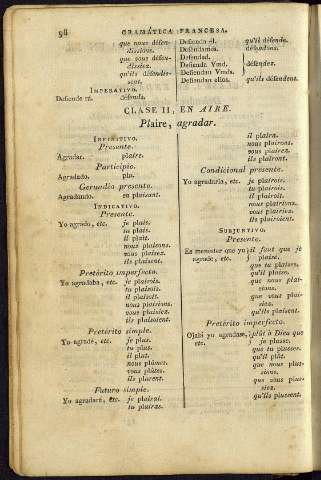 98 GRAMÁTICA FRANCESA.
que nous défen-
dissions.
que vous défen-
dissiez.
qu'ils défendis-
sent.
IMPERATIVO.
Defiende tú. défends.
Defienda él. qu'il défende.
Defendamos. défendons.
Defended.
Defienda Vmd. défendez.
Defiendan Vmds.
Defiendan ellos. qu'ils défendent.
CLASE II, EN AIRE.
Plaire, agradar.
INFINITIVO.
Presente.
Agradar. plaire.
Participio.
Agradado. plu.
Gerundio presente.
Agradando. en plaisant.
INDICATIVO.
Presente.
Yo agrado, etc. je plais.
tu plais.
il plait.
nous plaisons.
vous plaisez.
ils plaisent.
Pretérito imperfecto.
Yo agradaba, etc. je plaisois.
tu plaisois.
il plaisoit.
nous plaisions.
vous plaisiez.
ils plaisoient.
Pretérito simple.
Yo agradé, etc. je plus.
tu plus.
il plut.
nous plûmes.
vous plûtes.
ils plurent.
Futuro simple.
Yo agradaré, etc. je plairai.
tu plairas.
il plaira.
nous plairons.
vous plairez.
ils plairont.
Condicional presente.
Yo agradaria, etc. je plairois.
tu plairois.
il plairoit.
nous plairions.
vous plairiez.
ils plairoient.
SUBJUNTIVO.
Presente.
Es menester que yo il faut que je
agrade, etc. plaise.
que tu plaises.
qu'il plaise.
que nous plai-
sions.
que vous plai-
siez.
qu'ils plaisent.
Pretérito imperfecto.
Ojalá yo agradase, plût à Dieu que
etc. je plusse.
que tu plusses.
qu'il plût.
que nous plus-
sions.
que vous plus-
siez.
qu'ils plussent.